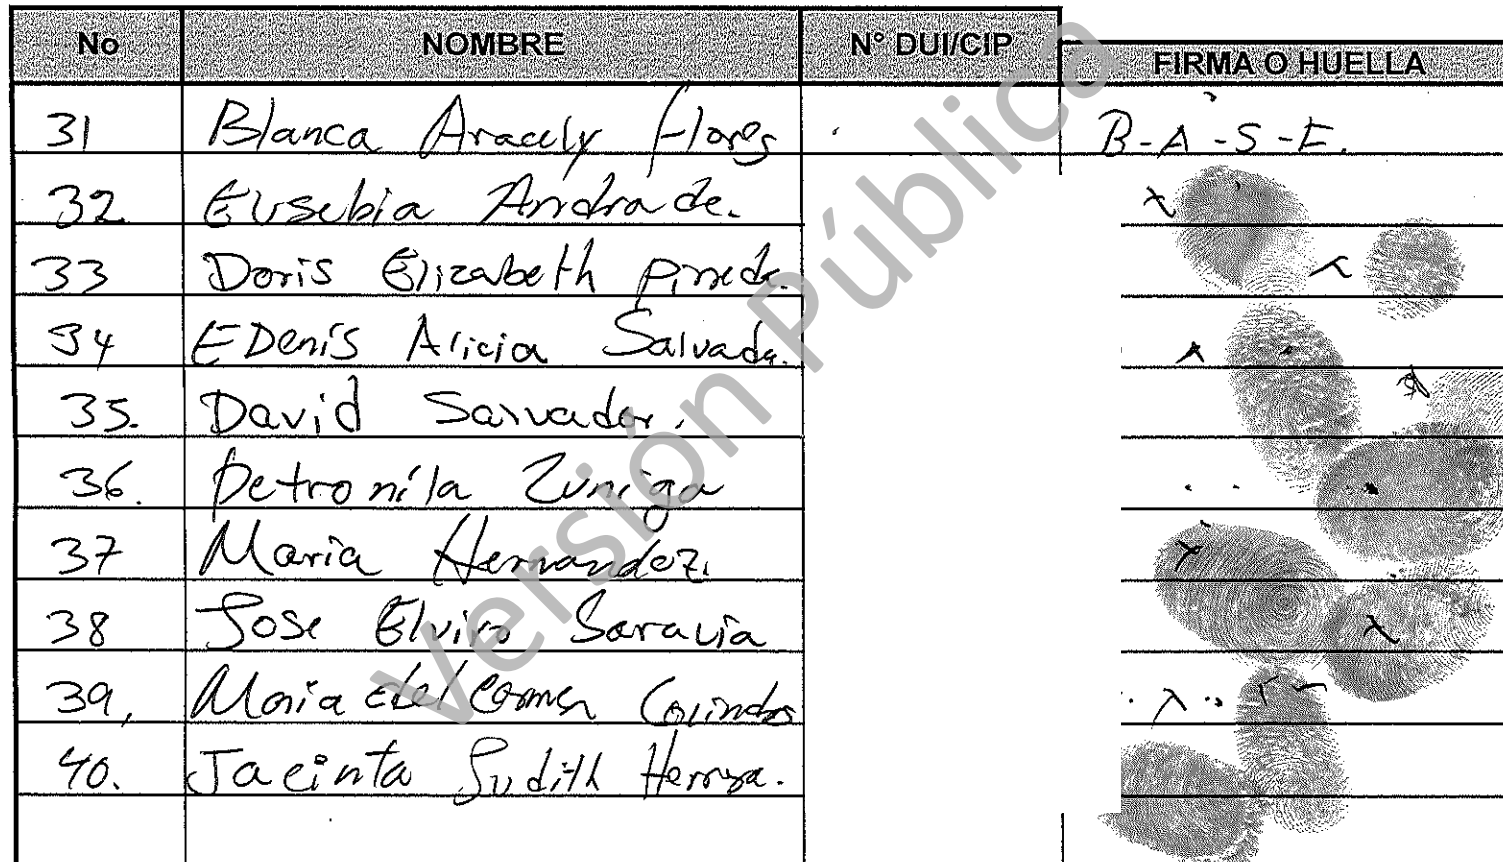 No NOMBRE N° DUI/CIP FIRMA O HUELLA
31 Blanca Aracely Flores B-A-S-F.
32 Eusebia Andrade.
33 Doris Elizabeth
34 EDenis Alicia Salvada.
35. David Sarvador.
36. Petronila Zuniga
37 Maria Hernandez.
38 Jose Elviro Saravia
39, Maria del Carmen
40. Jacinta Judith Herrera.
Versión Pública